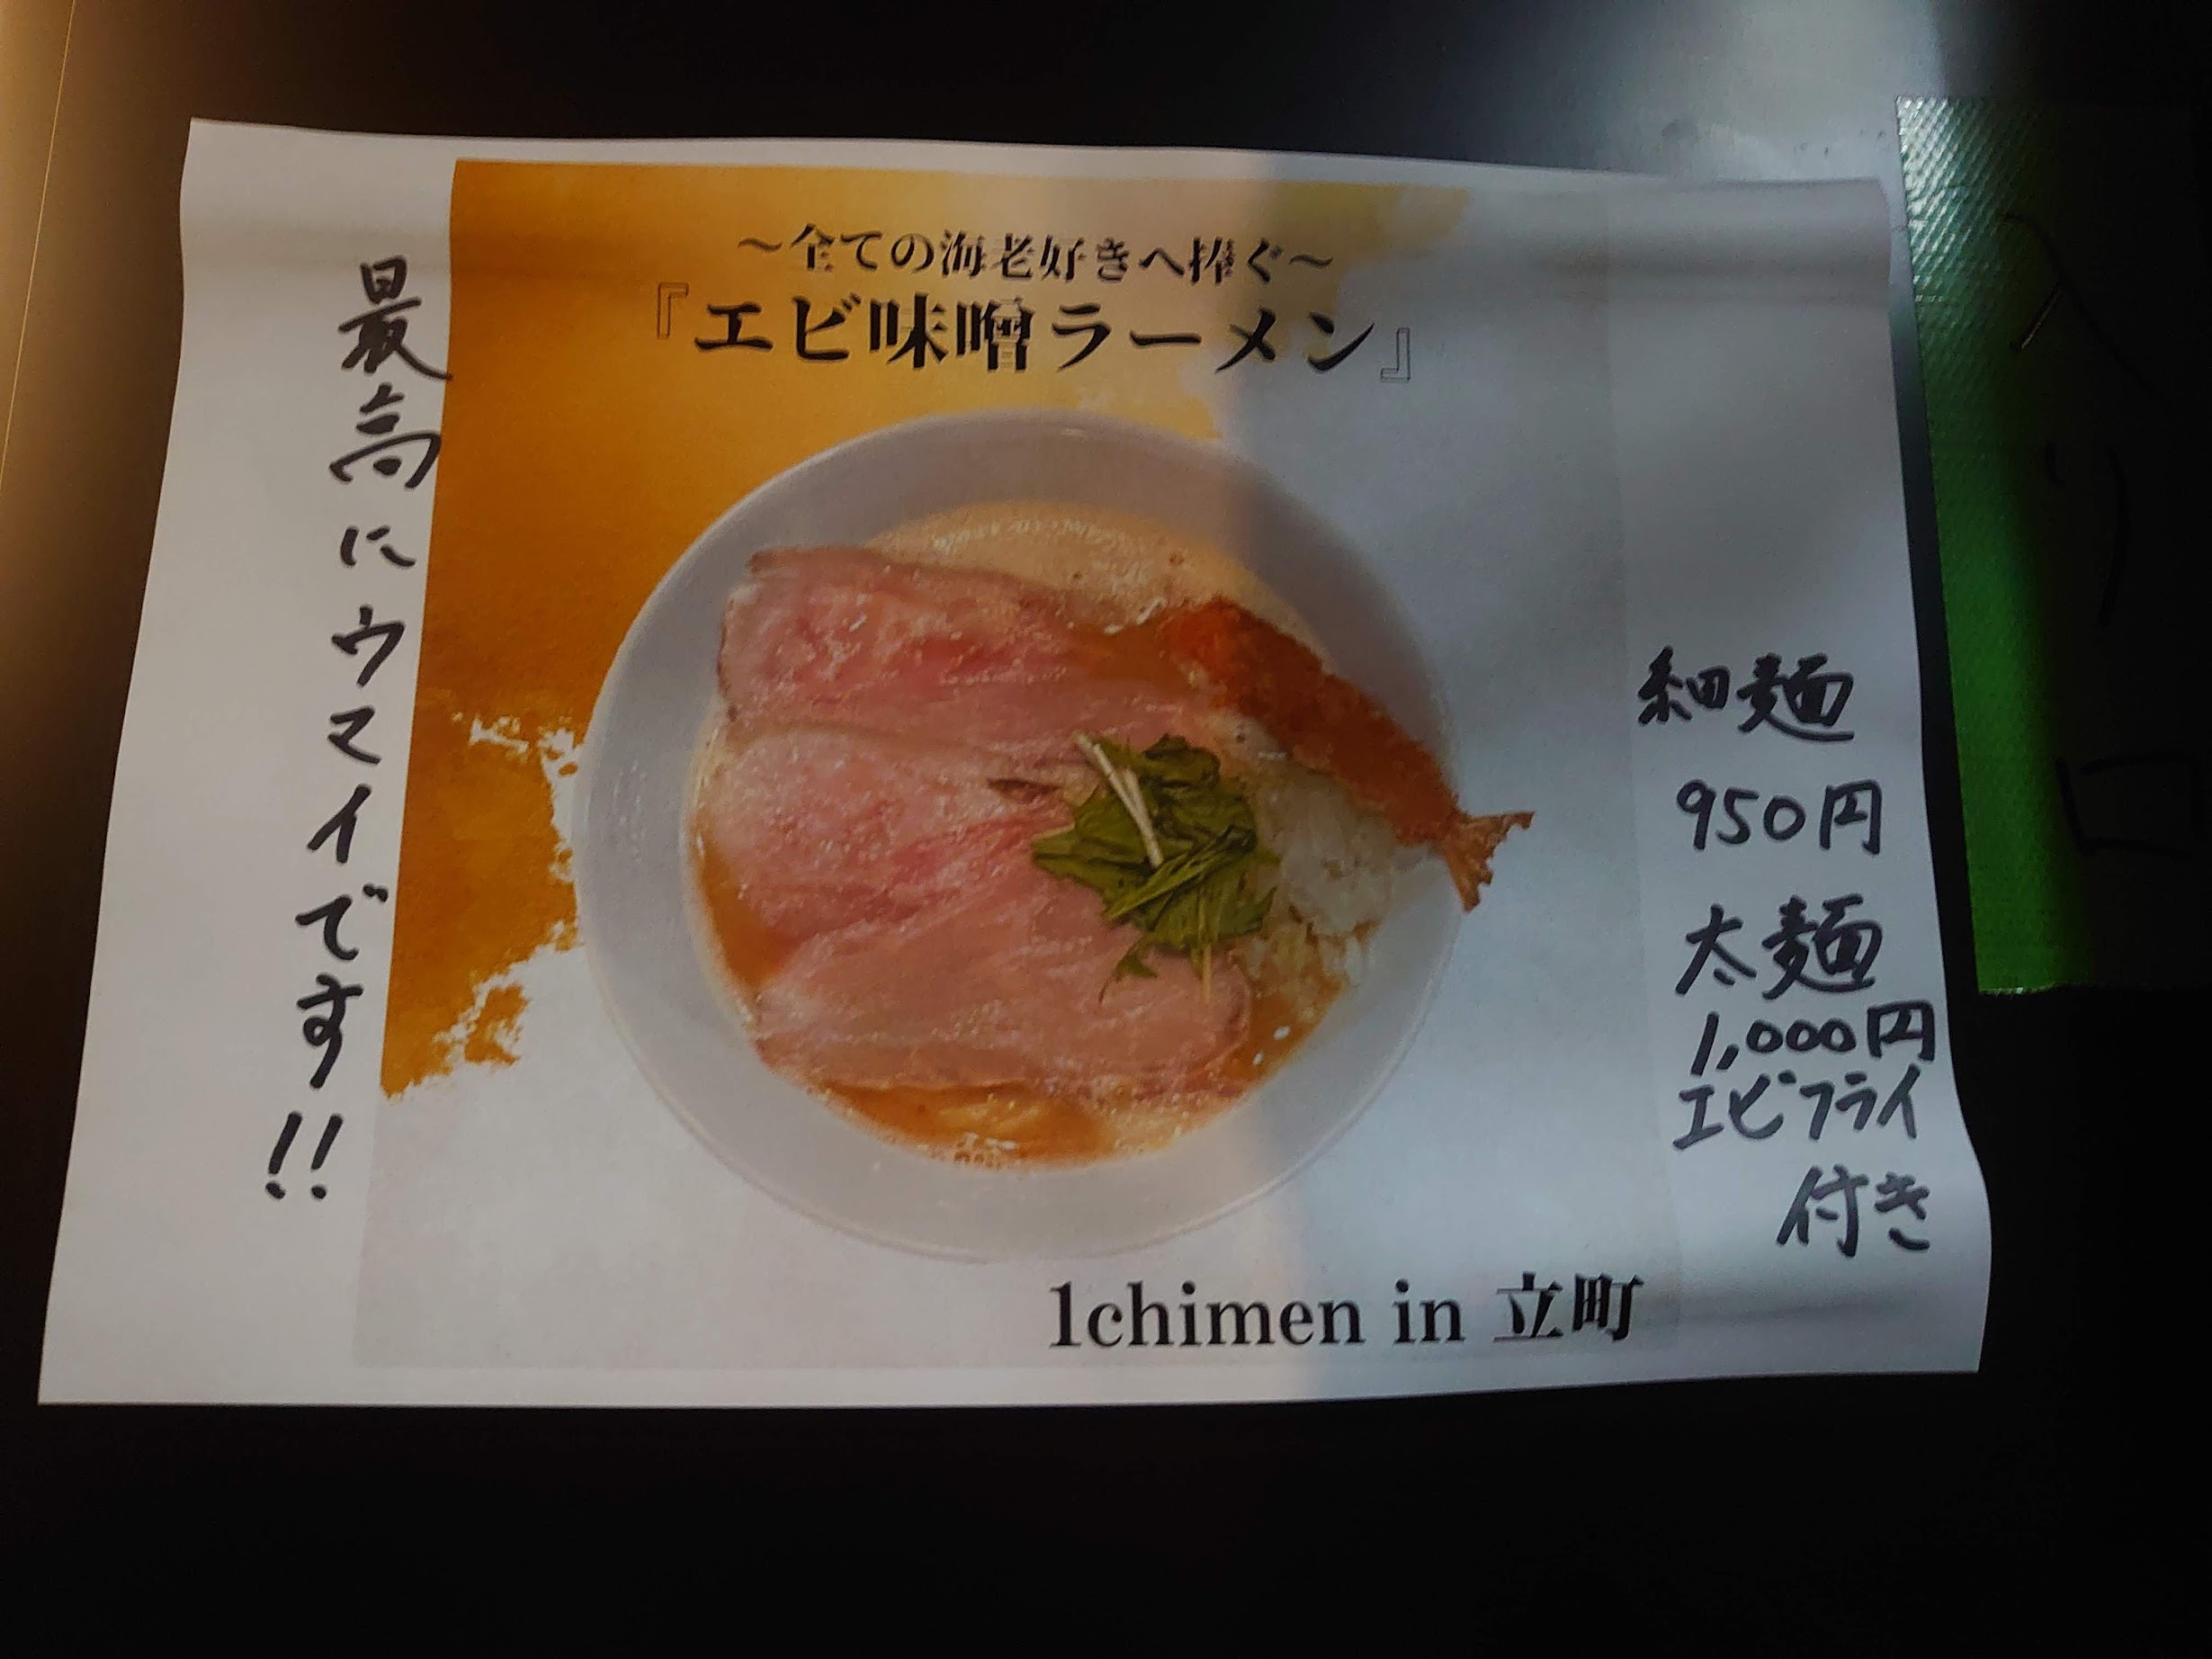 ～全ての海老好きへ捧ぐ～
『エビ味噌ラーメン』
最高にウマイです!!
細麺
950円
太麺
1,000円
エビフライ
付き
1chimen in 立町
入り口